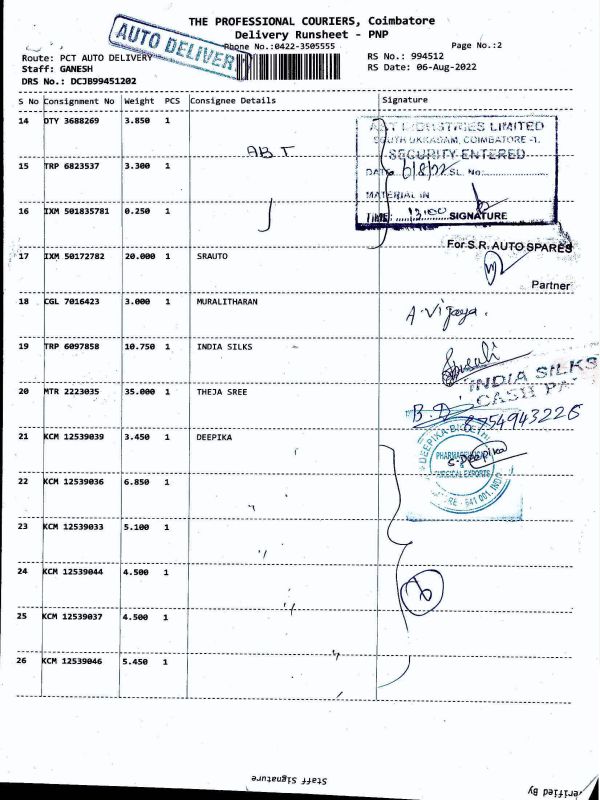 THE PROFESSIONAL COURIERS, Coimbatore
Delivery Runsheet - PNP
AUTO DELIVERY
Phone No.:0422-3505555
Page No.:2
Route: PCT AUTO DELIVERY
RS No.: 994512
Staff: GANESH
RS Date: 06-Aug-2022
DRS No.: DCJB99451202
S No Consignment No Weight PCS Consignee Details Signature
14 DTY 3688269 3.850 1
ABT
INDUSTRIES LIMITED
SOUTH UKKADAM, COIMBATORE -1.
SECURITY ENTERED
15 TRP 6823537 3.300 1
DATE 6/8/22 SL. No:
MATERIAL IN
16 IXM 501835781 0.250 1
TIME: 13:00 SIGNATURE
For S.R. AUTO SPARES
17 IXM 50172782 20.000 1 SRAUTO
Partner
18 CGL 7016423 3.000 1 MURALITHARAN
A. Vijaya.
19 TRP 6097858 10.750 1 INDIA SILKS
INDIA SILKS
CASH
20 MTR 2223035 35.000 1 THEJA SREE
B. D
8754943226
21 KCM 12539039 3.450 1 DEEPIKA
DEEPIKA
S. Deepika
SURGICAL EXPORTS
641 001. INDIA
22 KCM 12539036 6.850 1
23 KCM 12539033 5.100 1
24 KCM 12539044 4.500 1
25 KCM 12539037 4.500 1
26 KCM 12539046 5.450 1
Staff Signature
Verified By